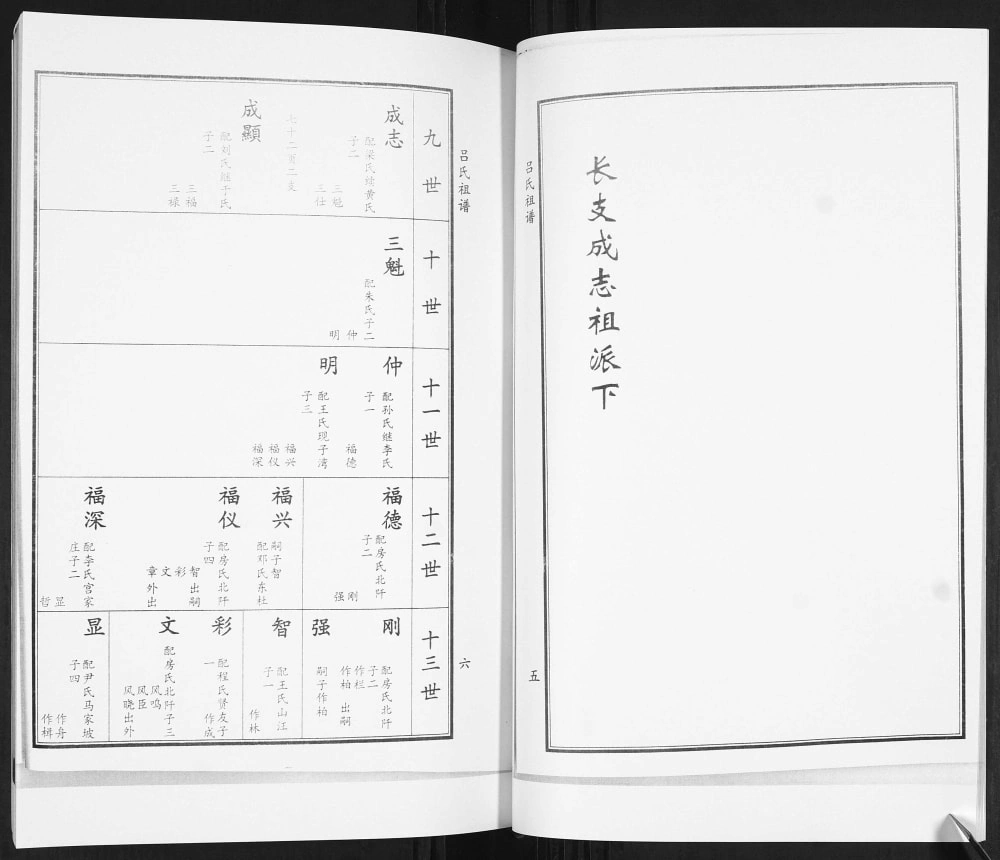 吕氏祖谱
五
长支成志祖派下
吕氏祖谱
六
九世
成志
配梁氏续黄氏
子二
三魁
三仕
成顯
配刘氏继于氏
子二
三福
三禄
十世
三魁
配朱氏子二
仲
明
十一世
仲
配孙氏继李氏
子一
福德
明
配王氏现子湾
子三
福兴
福仪
福深
十二世
福德
配房氏北阡
子二
刚
强
福兴
嗣子智
配邓氏东杜
福仪
配房氏北阡
子四
智出嗣
彩
文
章外出
福深
配李氏宫家
庄子二
显
哲
十三世
刚
配房氏北阡
子二
作栏
作柏出嗣
强
嗣子作柏
智
配王氏山汪
子一
作林
彩
配程氏贤友子
一
作成
文
配房氏北阡子三
凤鸣
凤臣
凤晓出外
显
配尹氏马家坡
子四
作舟
作楫